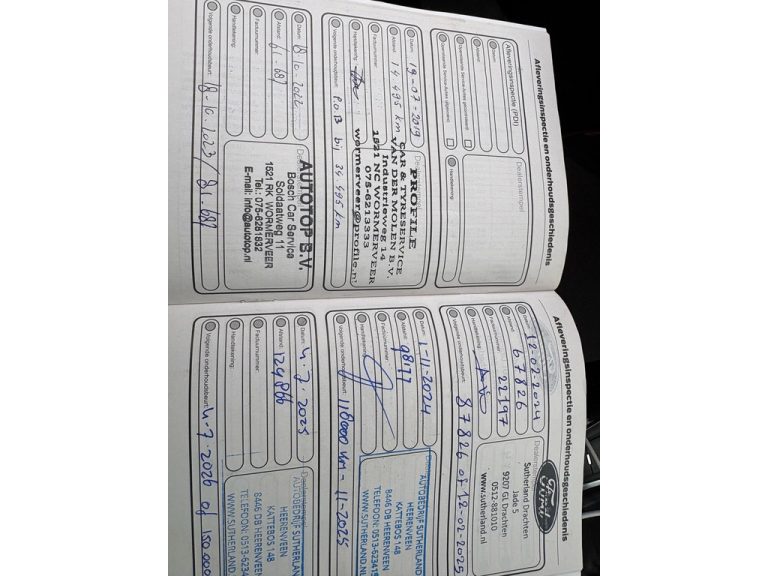 Afleveringsinspectie en onderhoudsgeschiedenis
Afleveringsinspectie (PDI)
Datum:
Afstand:
Openstaande Service Acties gecontroleerd:
Openstaande Service Acties afgemeld:
Dealerstempel
Handtekening:
Datum: 19-07-2019
Afstand: 14.495 km
Factuurnummer:
Handtekening:
Volgende onderhoudsbeurt: P.O.B bij 34.495 km
PROFILE
CAR & TYRESERVICE
VAN DER MOLEN B.V.
Industrieweg 14
1521 NC WORMERVEER
075-6213333
wormerveer@profile.nl
Datum: 18 10. 2022
Afstand: 61.689
Factuurnummer:
Handtekening:
Volgende onderhoudsbeurt: 18-10.2023/81.689
AUTOTOP B.V.
Bosch Car Service
Soldaatweg 11
1521 RK WORMERVEER
Tel.: 075-6281832
E-mail: info@autotop.nl
Afleveringsinspectie en onderhoudsgeschiedenis
Datum: 12-02-2024
Afstand: 67826
Factuurnummer: 22197
Handtekening:
Volgende onderhoudsbeurt: 87826 of 12-02-2025
Ford
Sutherland Drachten
Jade 5
9207 GL Drachten
0512-881010
www.sutherland.nl
Datum: 1-11-2024
Afstand: 98177
Factuurnummer:
Handtekening:
Volgende onderhoudsbeurt: 118000 km - 11-2025
AUTOBEDRIJF SUTHERLAND
HEERENVEEN
KATTEBOS 148
8446 DB HEERENVEEN
TELEFOON: 0513-62341
WWW.SUTHERLAND.NL
Datum: 4.7.2025
Afstand: 129866
Factuurnummer:
Handtekening:
Volgende onderhoudsbeurt: 4-7.2026 of 150.000
AUTOBEDRIJF SUTHER
HEERENVEEN
KATTEBOS 148
8446 DB HEERENVEEN
TELEFOON: 0513-6234
WWW.SUTHERLAND